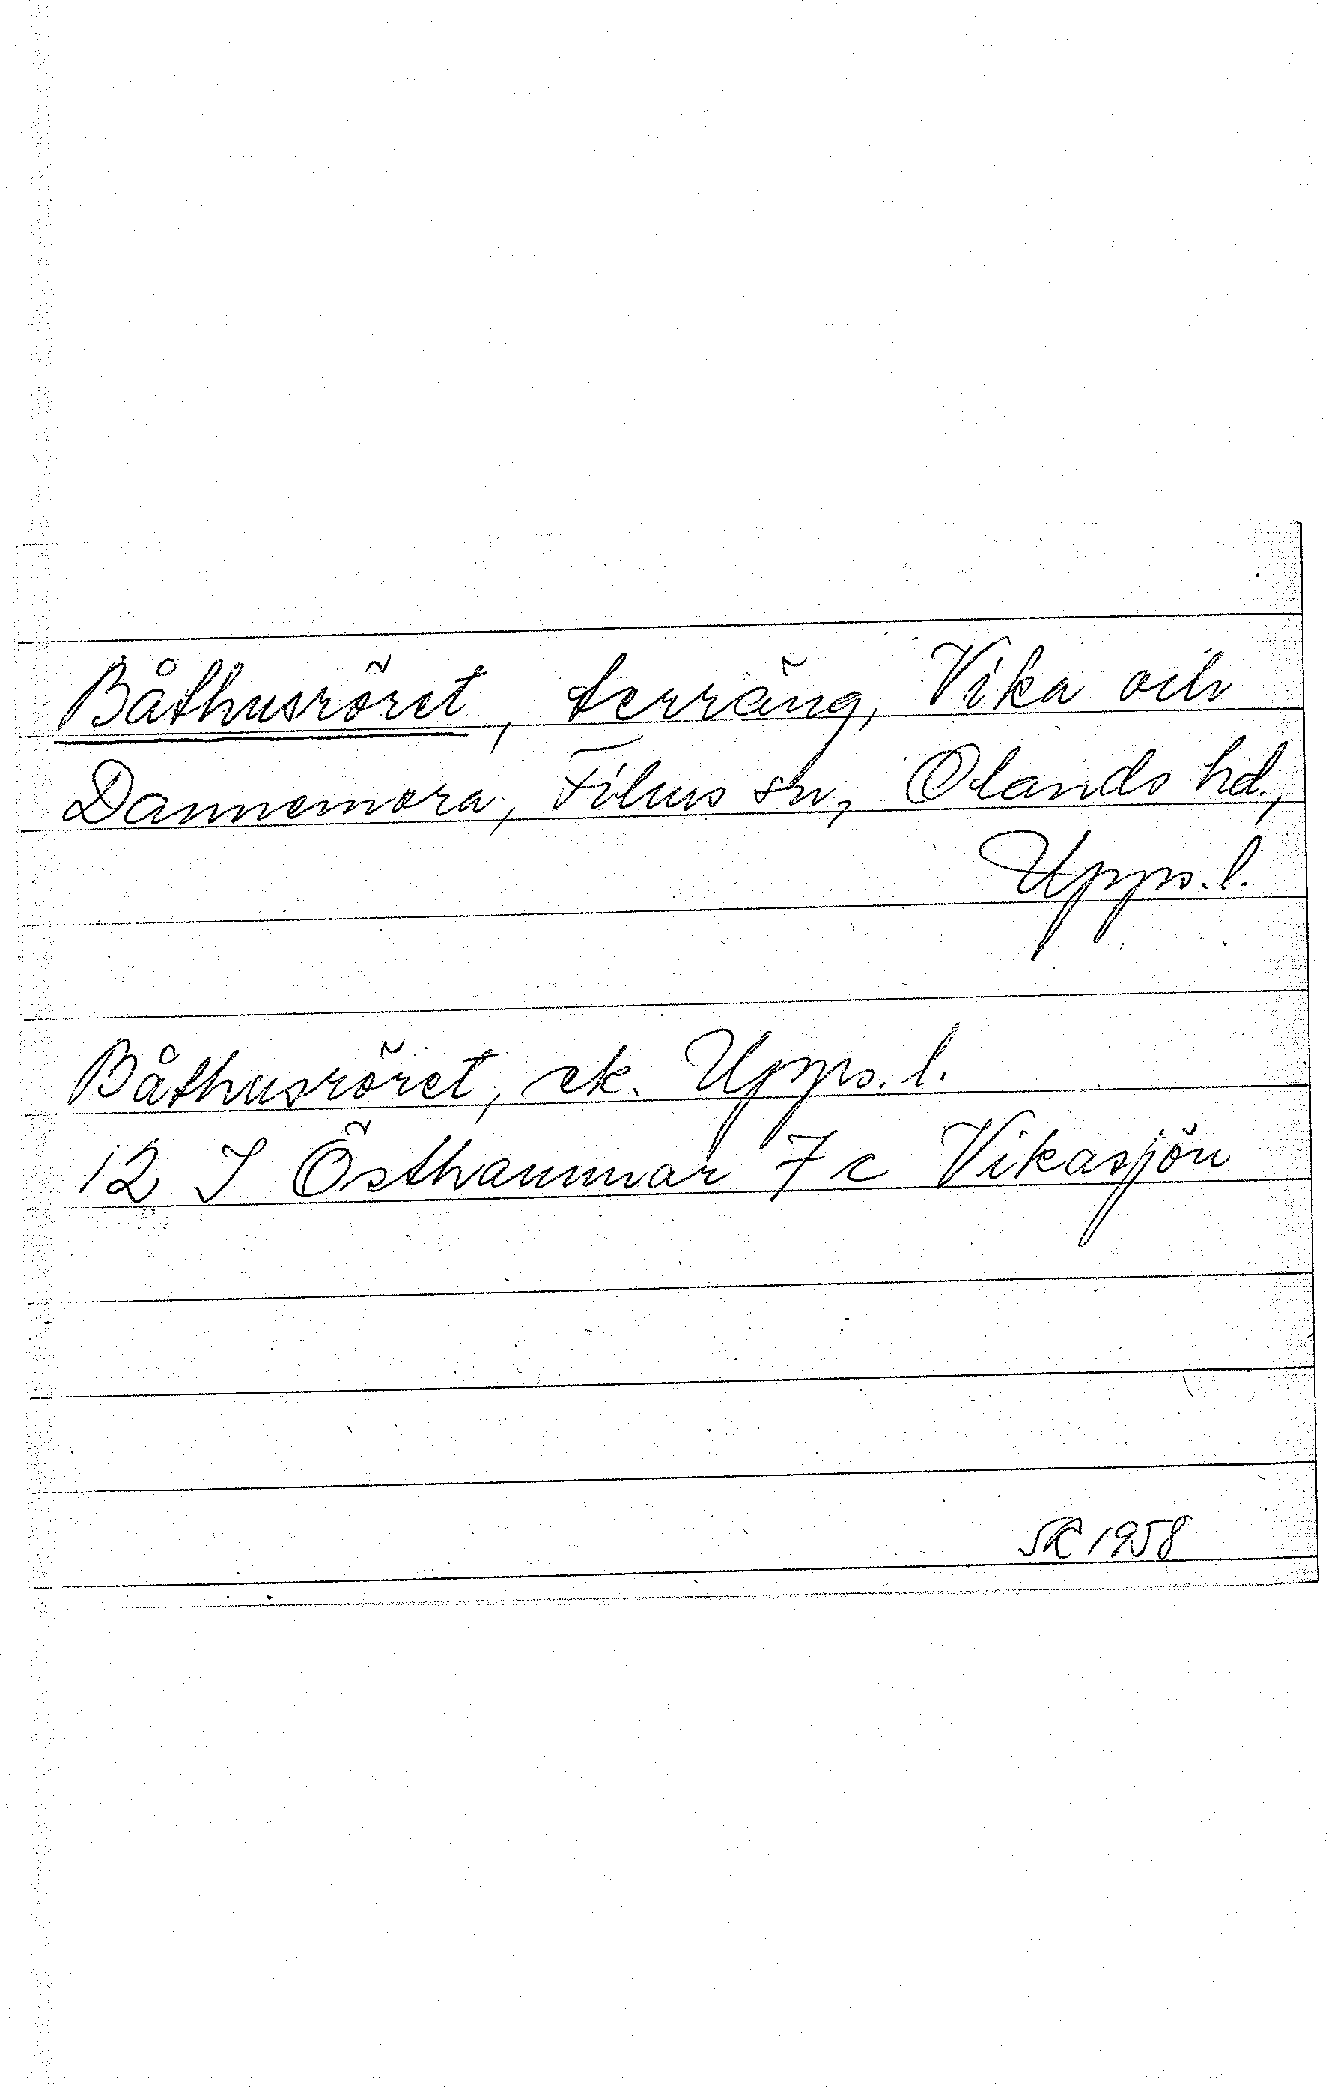 Båthusröret, terräng, Vika och
Dannemora, Films sn, Olands hd.,
Upps. l.
Båthusröret, ek. Upps. l.
12 I Östhammar 7 c Vikasjön
SR 1958